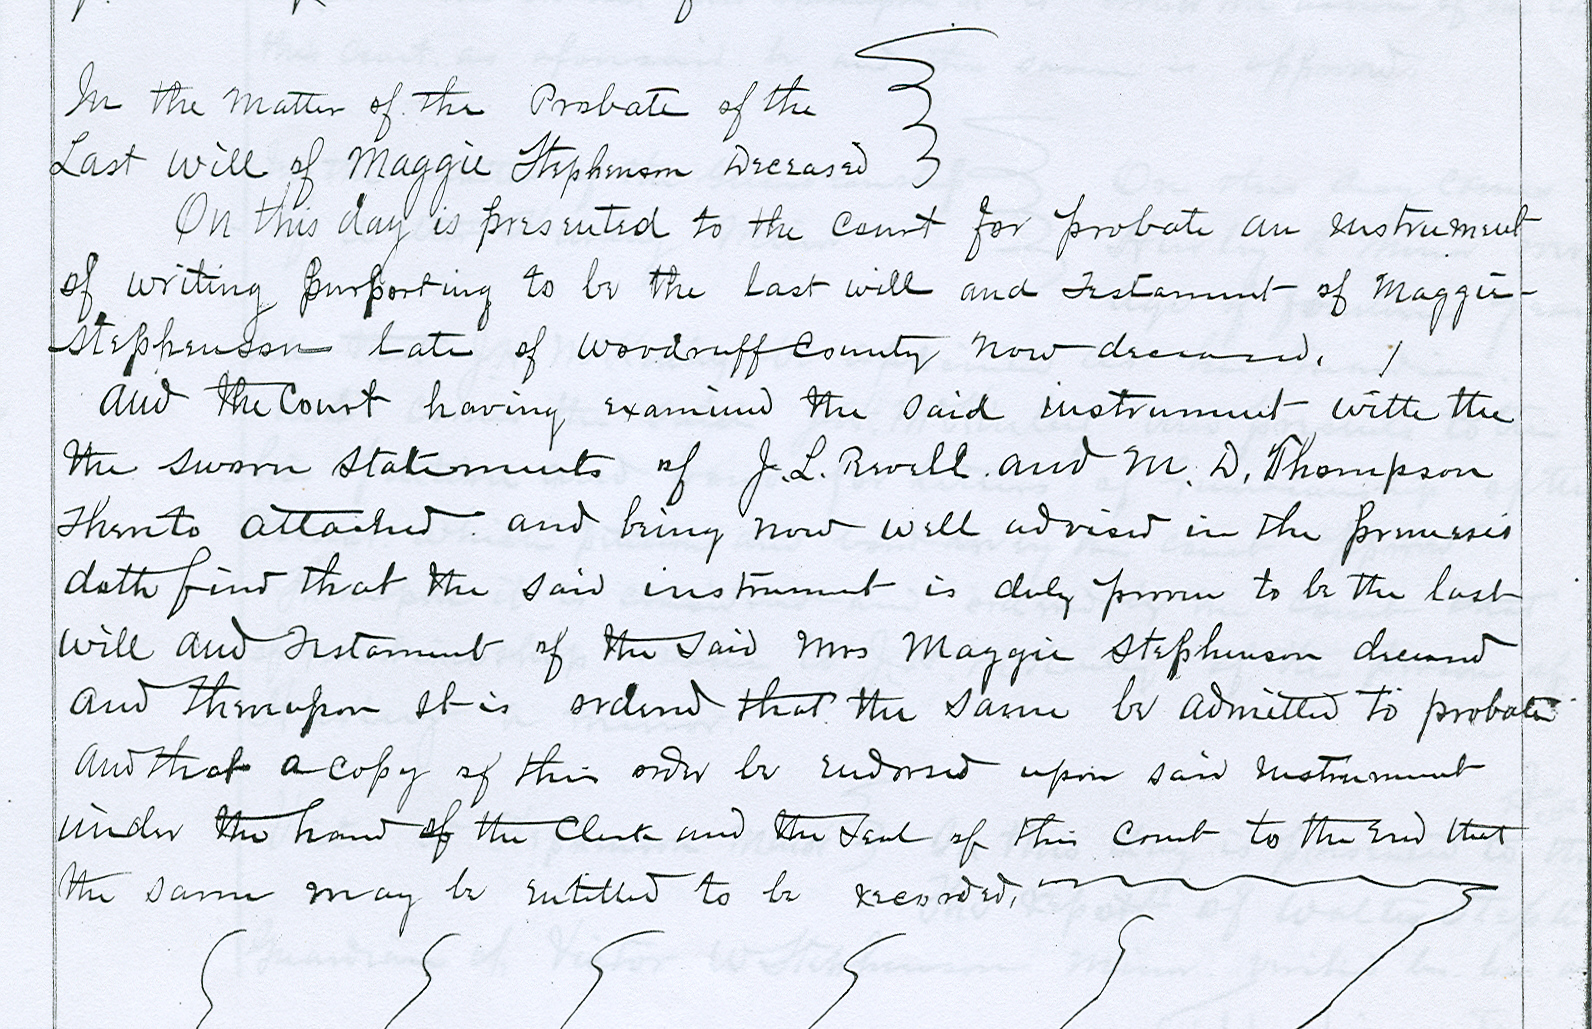 In the Matter of the Probate of the
Last Will of Maggie Stephenson Deceased
On this day is presented to the Court for probate an instrument
of writing purporting to be the last will and Testament of Maggie
Stephenson late of Woodruff County now deceased.
And the Court having examined the said instrument with the
the sworn statements of J. L. Revell and M. D. Thompson
thereto attached and being now well advised in the premesis
doth find that the said instrument is duly proven to be the last
will and Testament of the said Mrs Maggie Stephenson deceased
and thereupon it is ordered that the same be admitted to probate
and that a copy of this order be endorsed upon said instrument
under the hand of the Clerk and the Seal of this Court to the End that
the same may be entitled to be recorded.